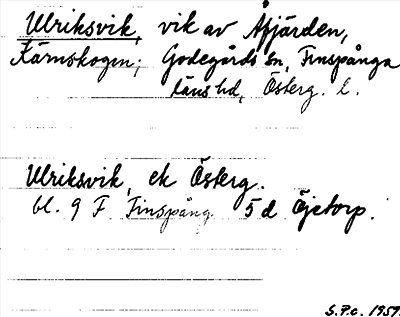 Ulriksvik, vik av Åfjärden,
Kärnskogen; Godegårds sn, Finspånga
läns hd, Österg. l.
Ulriksvik, ek Österg.
bl. 9 F Finspång 5 d Öjetorp.
S.P.c. 1959.